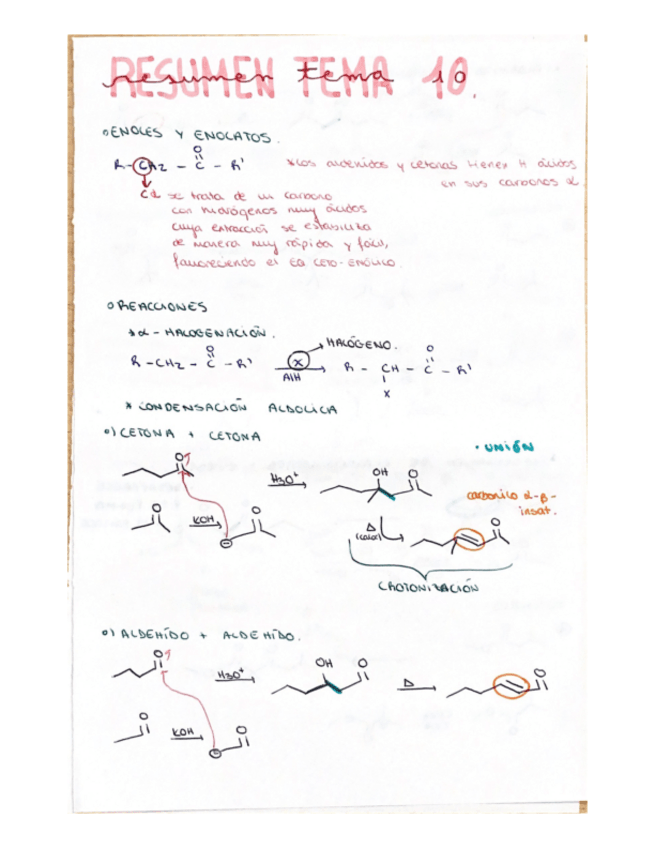 RESUMEN TEMA 10.
resumen tema 10
○ ENOLES Y ENOLATOS.
O
R-CH2 - C - R'
*Los aldehidos y cetonas tienen H ácidos
en sus carbonos α.
Cα se trata de un carbono
con hidrógenos muy ácidos
cuya extracción se estabiliza
de manera muy rápida y fácil,
favoreciendo el EQ CETO-ENÓLICO.
○ REACCIONES
* α - HALOGENACIÓN.
HALÓGENO.
O
R-CH2 - C - R'
X
AlH
O
R - CH - C - R'
X
* CONDENSACIÓN ALDÓLICA
○) CETONA + CETONA
• UNIÓN
O
H3O+
OH O
carbonilo α-β-
insat.
O
KOH
O
⊖
Δ
(calor)
O
CROTONIZACIÓN
○) ALDEHÍDO + ALDEHÍDO.
O
H3O+
OH O
Δ
O
O
KOH
O
⊖